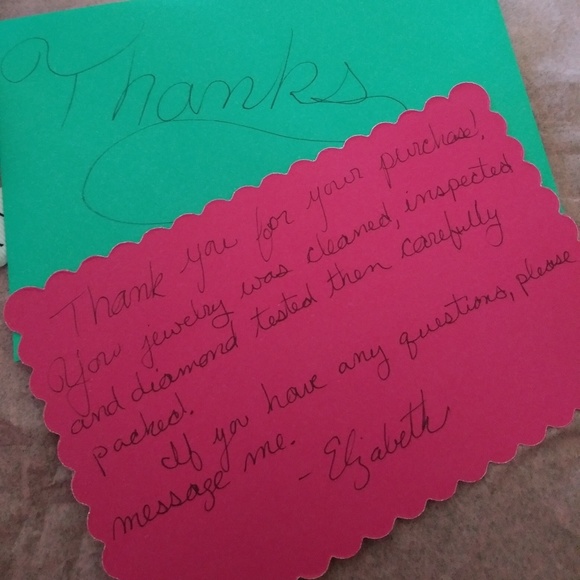 Thanks
Thank you for your purchase!
Your jewelry was cleaned, inspected
and diamond tested then carefully
packed.
If you have any questions, please
message me.
- Elizabeth